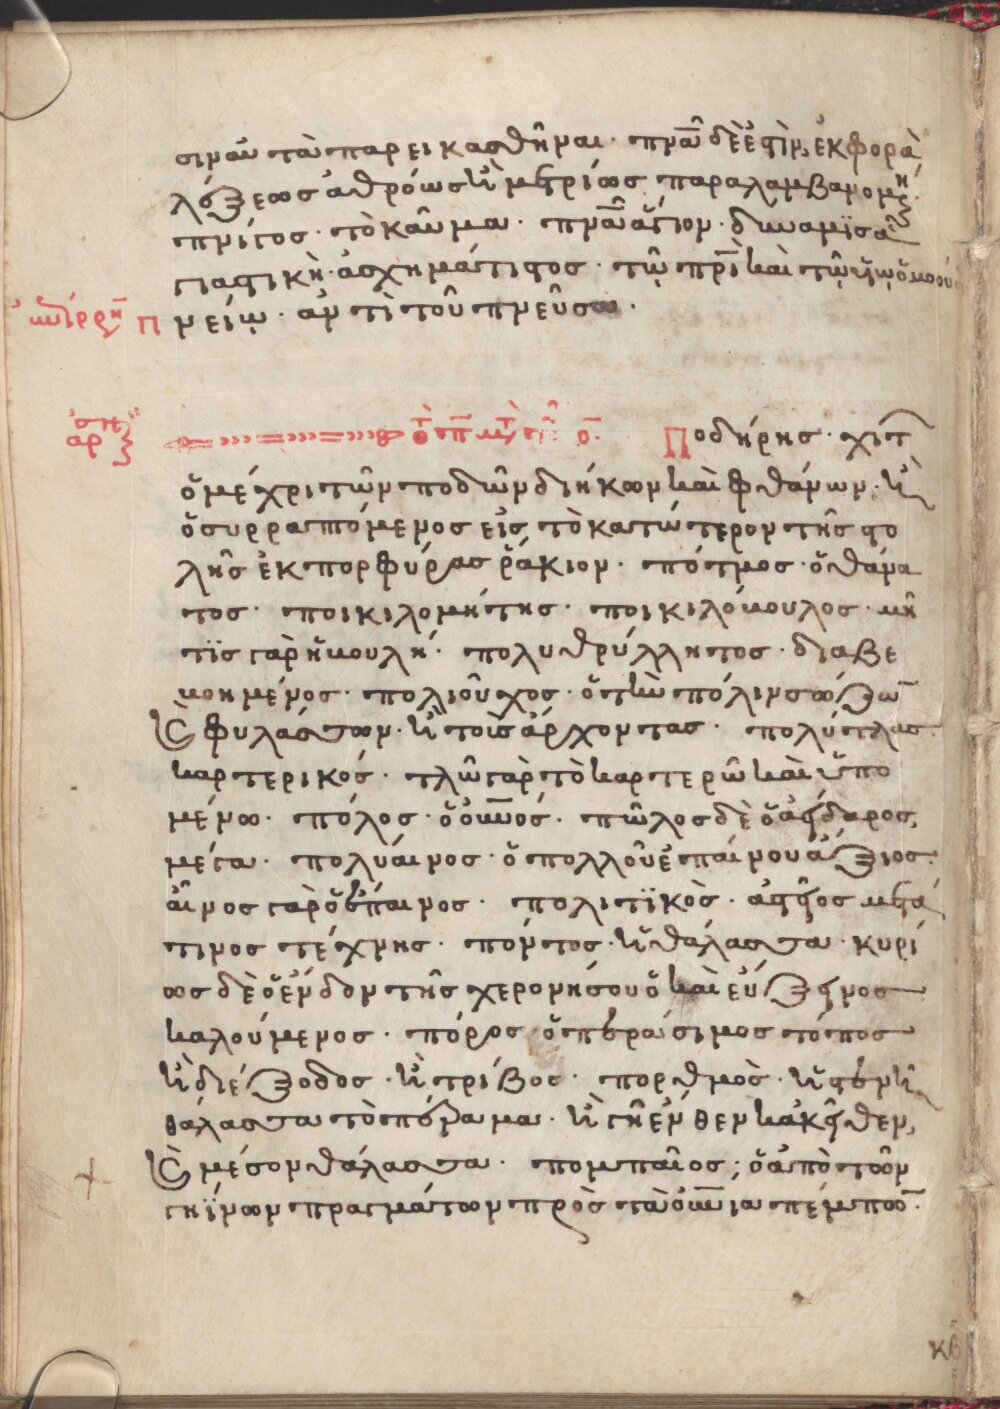 σιν αὐτὰ παρεικασθῆναι · πνα δέ ἐστιν, ἐκφορὰ
λέξεως ἀθρόως κ μετρίως παραλαμβανομένη ·
πνίγος · τὸ καῦμα · πνα ἅγιον · δύναμις ἁ
γιαστικὴ · ἀσχημάτιστος · τῶ πρὶ καὶ τῶ υἱῶ ὁμοού
Πνείω · ἀντὶ τοῦ πνεύσω ·
ἀρσενικ
Ποδήρης · χιτ
ὁ μέχρι τῶν ποδῶν διήκων καὶ φθάνων · κ
ὁ συρραπτόμενος εἰς τὸ κατώτερον τῆς στο
λῆς ἐκ πορφύρας ῥάκιον · πότμος · ὁ θάνα
τος · ποικιλομήτης · ποικιλόβουλος · μῆ
τις γὰρ ἡ βουλή · πολυθρύλλητος · διαβε
βοημένος · πολιοῦχος · ὁ τὴν πόλιν σώζων
κ φυλάττων · κ τοὺς ἄρχοντας · πολύτλας ·
καρτερικός · τλῶ γὰρ τὸ καρτερῶ καὶ ὑπο
μένω · πόλος · ὁ οὐνός · πῶλος δὲ ὁ γάδαρος,
μέγα · πολύαινος · ὁ πολλοῦ ἐπαίνου ἄξιος ·
αἶνος γὰρ ὁ ἔπαινος · πολιτικὸς · ἀστεῖος μετά
τινος τέχνης · πόντος · ἡ θάλαττα · κυρί
ως δὲ ὁ ἔνδον τῆς χερονήσου ὁ καὶ εὔξεινος
καλούμενος · πόρος ὁ περάσιμος τόπος
κ διέξοδος · κ τρίβος · πορθμὸς · ἡ στενὴ
θάλαττα τὸ πέραμα · κ γῆ ἔνθεν κἀκεῖθεν,
κ μέσον θάλαττα · πομπαῖος ; ὁ ἀπὸ τῶν
γηΐνων πραγμάτων πρὸς τὰ οὐνια πέμπων ·
κβ